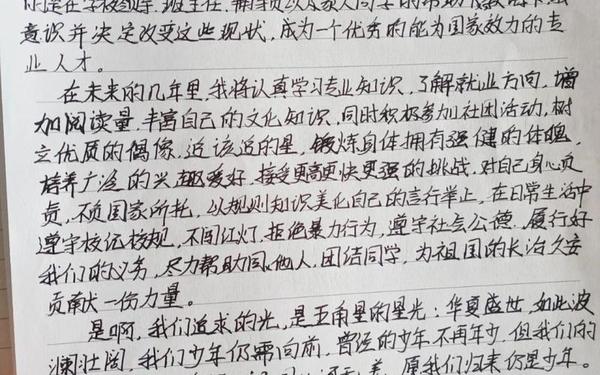 在学校领导、班主任、辅导员以及家人同学的帮助
意识并决定改变这些现状，成为一个优秀的能为国家效力的专
业人才。
在未来的几年里，我将认真学习专业知识，了解就业方向，增
加阅读量，丰富自己的文化知识，同时积极参加社团活动，树
立优质的偶像，追该追的星，锻炼身体拥有强健的体魄，
培养广泛的兴趣爱好，接受更高更快更强的挑战，对自己身心负
责，不负国家所托，以规则知识美化自己的言行举止，在日常生活中
遵守校纪校规，不闯红灯，拒绝暴力行为，遵守社会公德，履行好
我们的义务，尽力帮助他人，团结同学，为祖国的长治久安
贡献一份力量。
是啊，我们追求的光，是五角星的星光：华夏盛世，如此波
澜壮阔，我们少年仍需向前，曾经的少年不再年少，但我们的
愿我们归来仍是少年。